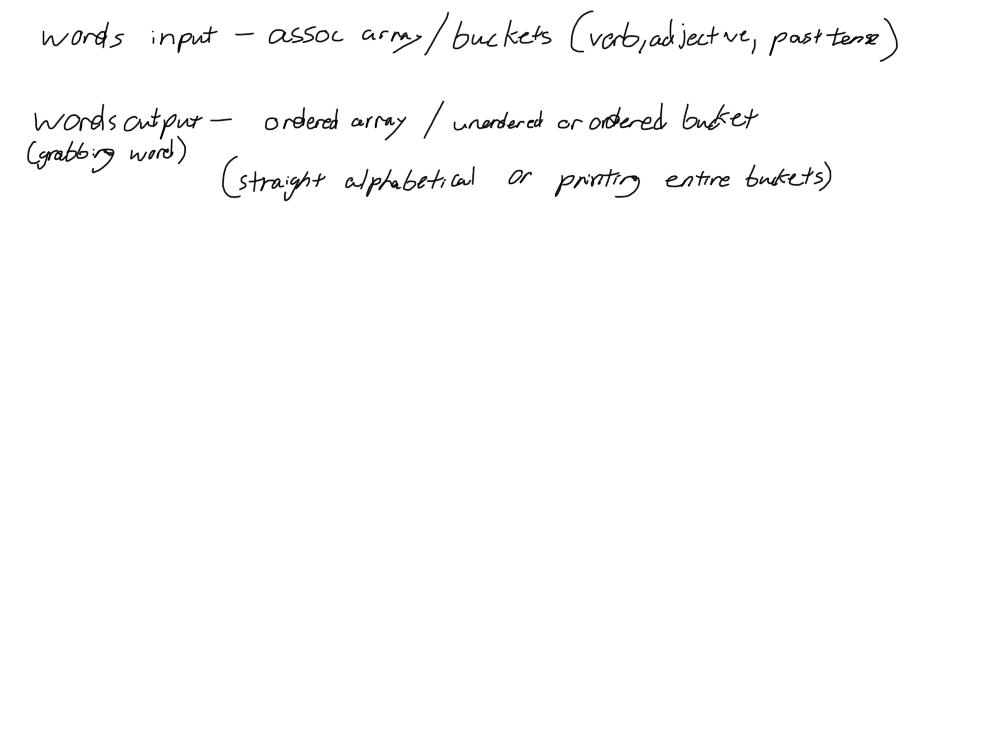 words input - assoc array/buckets (verb, adjective, past tense)
words output - ordered array / unordered or ordered bucket
(grabbing word)
(straight alphabetical or printing entire buckets)